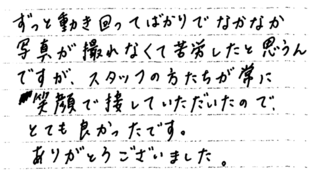 ずっと動き回ってばかりでなかなか
写真が撮れなくて苦労したと思うん
ですが、スタッフの方たちが常に
笑顔で接していただいたので、
とても良かったです。
ありがとうございました。